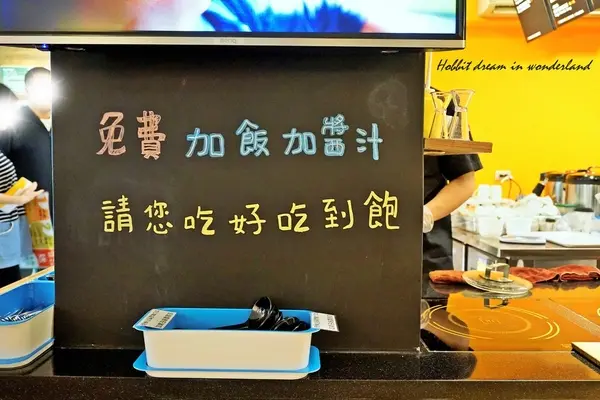 BenQ
Hobbit dream in wonderland
免費 加飯加醬汁
請您吃好吃到飽